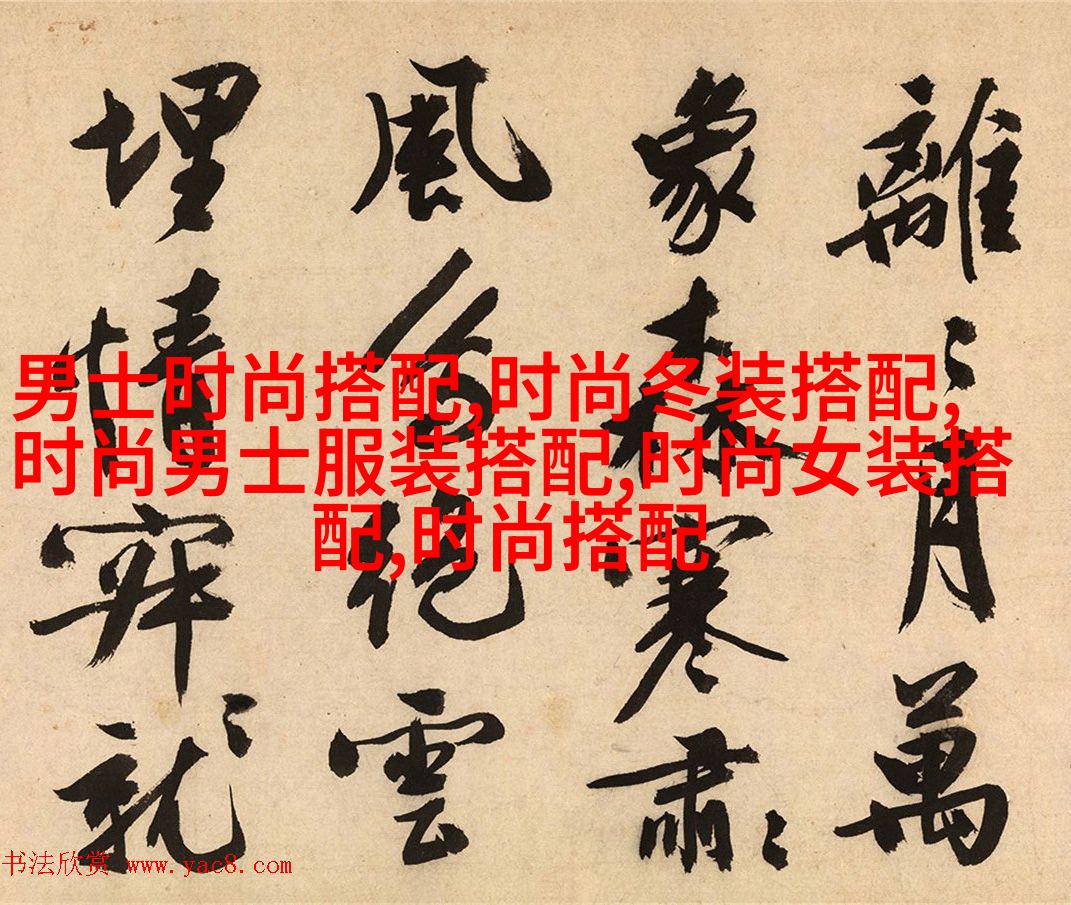 男士时尚搭配,时尚冬装搭配,
时尚男士服装搭配,时尚女装搭
配,时尚搭配
離〻萬
象森寒肅〻
風絕雲
埋情就〻
书法欣赏 www.yac8.com